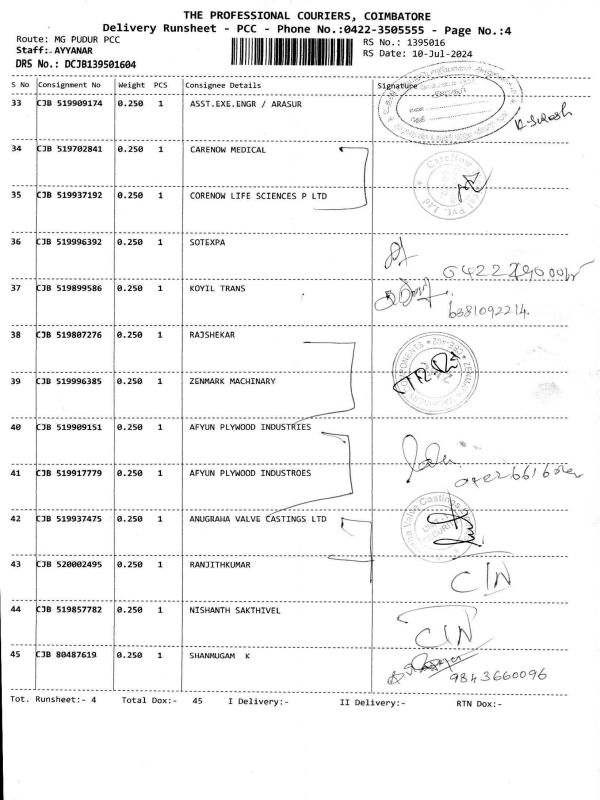 THE PROFESSIONAL COURIERS, COIMBATORE
Delivery Runsheet - PCC - Phone No.:0422-3505555 - Page No.:4
Route: MG PUDUR PCC
RS No.: 1395016
Staff:-AYYANAR
RS Date: 10-Jul-2024
DRS No.: DCJB139501604
S No Consignment No Weight PCS Consignee Details Signature
33 CJB 519909174 0.250 1 ASST.EXE.ENGR / ARASUR
34 CJB 519702841 0.250 1 CARENOW MEDICAL
CareNow
Pvt. Ltd
35 CJB 519937192 0.250 1 CORENOW LIFE SCIENCES P LTD
36 CJB 519996392 0.250 1 SOTEXPA
37 CJB 519899586 0.250 1 KOYIL TRANS
6381092214.
38 CJB 519807276 0.250 1 RAJSHEKAR
39 CJB 519996385 0.250 1 ZENMARK MACHINARY
40 CJB 519909151 0.250 1 AFYUN PLYWOOD INDUSTRIES
41 CJB 519917779 0.250 1 AFYUN PLYWOOD INDUSTROES
42 CJB 519937475 0.250 1 ANUGRAHA VALVE CASTINGS LTD
Valve Castings
43 CJB 520002495 0.250 1 RANJITHKUMAR
C/N
44 CJB 519857782 0.250 1 NISHANTH SAKTHIVEL
C/N
45 CJB 80487619 0.250 1 SHANMUGAM K
9843660096
Tot. Runsheet:- 4 Total Dox:- 45 I Delivery:- II Delivery:- RTN Dox:-